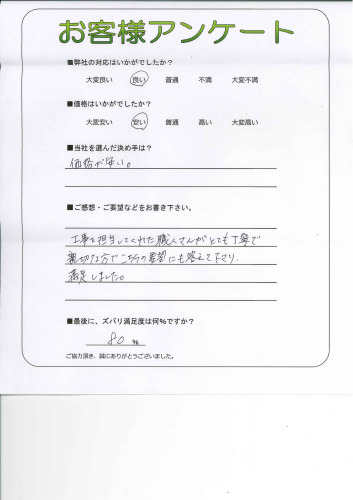 お客様アンケート
■弊社の対応はいかがでしたか?
大変良い 良い 普通 不満 大変不満
■価格はいかがでしたか?
大変安い 安い 普通 高い 大変高い
■当社を選んだ決め手は?
価格が安い。
■ご感想・ご要望などをお書き下さい。
工事を担当してくれた職人さんがとても丁寧で
親切な方でこちらの要望にも答えて下さり、
満足しました。
■最後に、ズバリ満足度は何%ですか?
80 %
ご協力頂き、誠にありがとうございました。